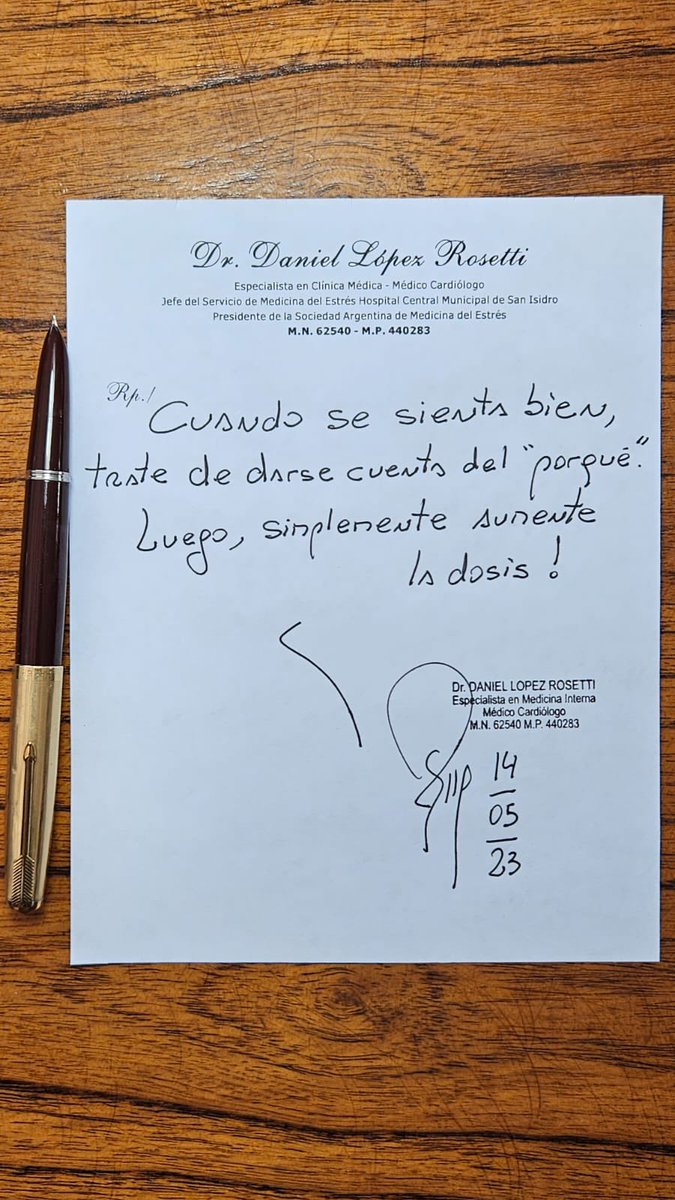 Dr. Daniel López Rosetti
Especialista en Clínica Médica - Médico Cardiólogo
Jefe del Servicio de Medicina del Estrés Hospital Central Municipal de San Isidro
Presidente de la Sociedad Argentina de Medicina del Estrés
M.N. 62540 - M.P. 440283
Rp./
Cuando se sienta bien,
trate de darse cuenta del "porqué".
Luego, simplemente aumente
la dosis!
Dr. DANIEL LOPEZ ROSETTI
Especialista en Medicina Interna
Médico Cardiólogo
M.N. 62540 M.P. 440283
14
05
23